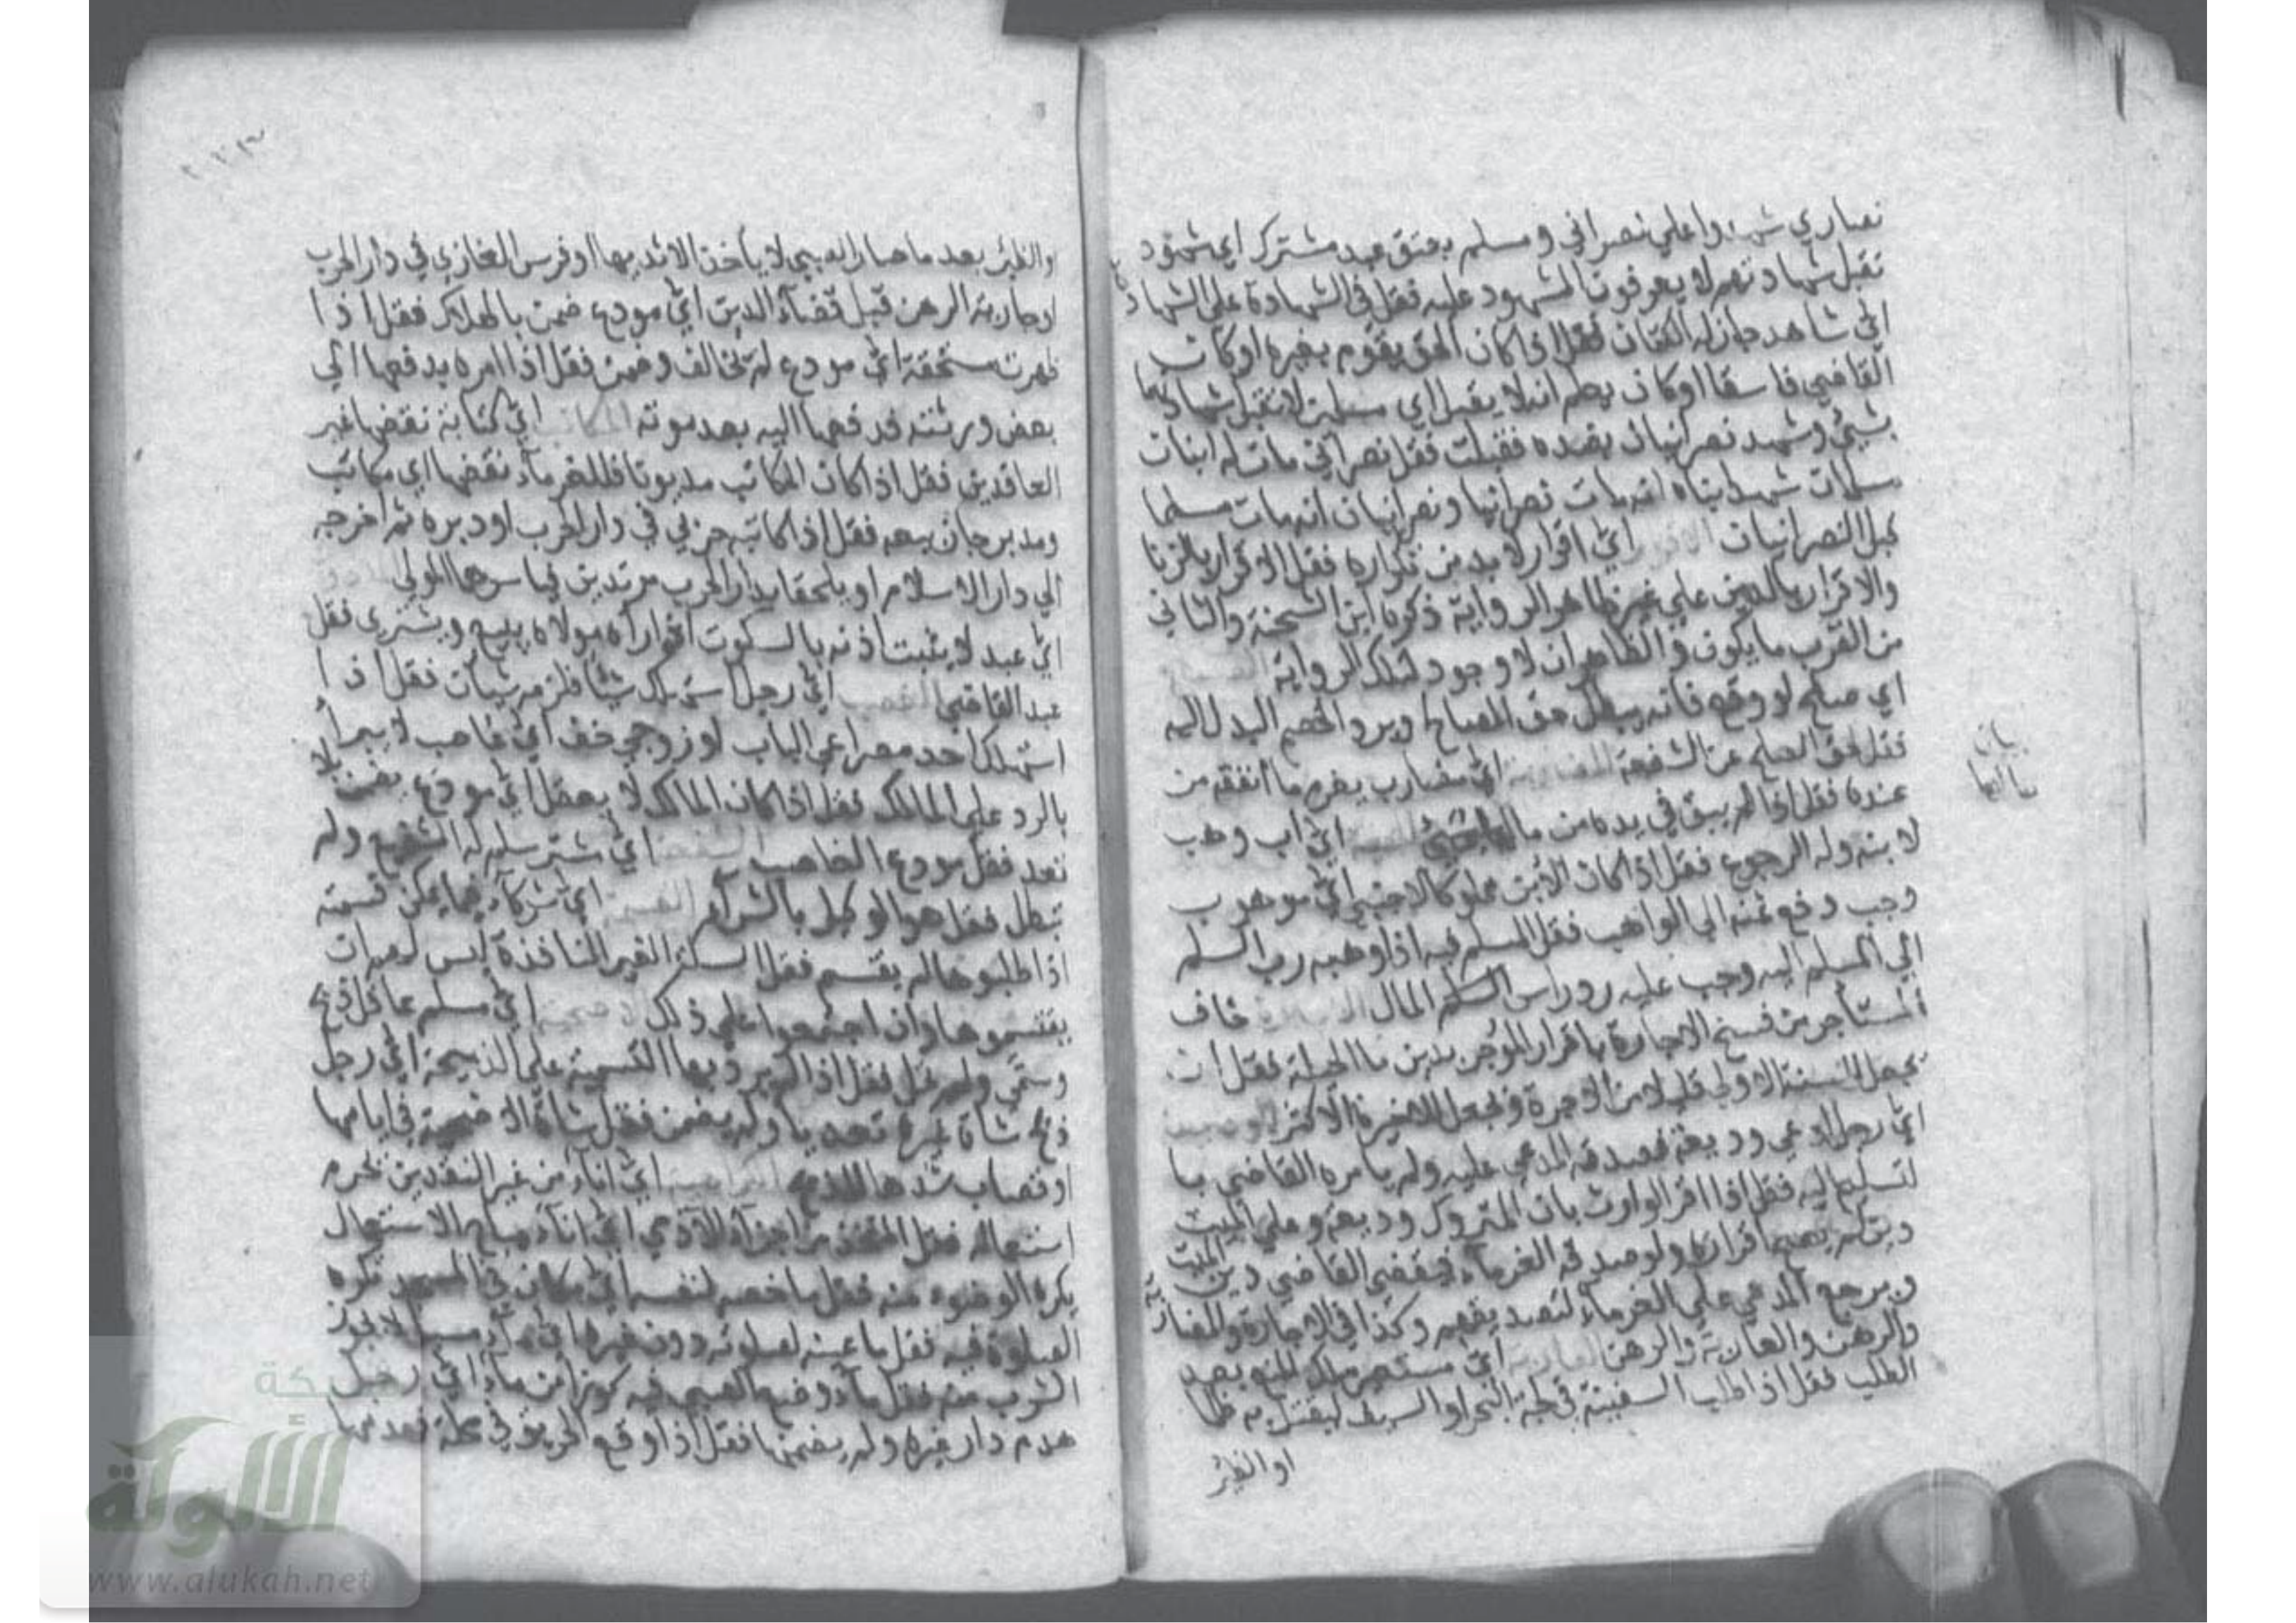 نصاري شهدوا علي نصراني ومسلم بعتق عبد مشترك اي شهود
تقبل شهادتهم لا يعرفون المشهود عليه فقل في الشهادة علي الشهادة
اي شاهد جاز له الكتمان فقل اذا كان الحق يقوم بغيره او كان
القاضي فاسقا او كان يعلم انه لا يقبل اي مسلمين لا تقبل شهادتهما
بشيئ وشهد نصرانيان بضده فقبلت فقل نصراني مات له ابنان
مسلمان شهد ابناه انه مات نصرانيا ونصرانيان انه مات مسلما
قبل النصرانيان الاقرار اي اقرار لا بد من تكراره فقل الاقرار بالزنا
والاقرار بالدين علي غير ظاهر الرواية ذكره ابن الشحنة والثاني
من القرب ما يكون والظاهر ان لا وجود لتلك الرواية الصلح
اي صلح لو وقع فانه يبطل حق المصالح ويرد الخصم البدل اليه
فقل الصلح عن الشفعة المضاربة اي مضارب يغرم ما انفقه من
عنده فقل اذا لم يبق في يده من مال الهبة اي اب وهب
لابنه وله الرجوع فقل اذا كان الابن مملوكا لاجنبي اي موهوب
وجب دفع ثمنه الي الواهب فقل المسلم فيه اذا وهبه رب السلم
الي المسلم اليه وجب عليه رد راس السلم المال الاجارة خاف
المستأجر من فسخ الاجارة باقرار المؤجر بدين ما الحيلة فقل ان
يجعل للسنة الاولي قليلا من الاجرة ويجعل للاخيرة الاكثر الوديعة
اي رجل ادعي وديعة فصدقه المدعي عليه ولم يأمره القاضي با
لتسليم اليه فقل اذا اقر الوارث بان المتروك وديعة وعلي الميت
دين لم يصح اقراره ولو صدقه الغرماء فيقضي القاضي دين الميت
ويرجع المدعي علي الغرماء لتصديقهم وكذا في الاجارة والمضاربة
والرهن والعارية والرهن العارية اي مستعير ملك المنع بعد
الطلب فقل اذا طلب السفينة في لجة البحر او السيف ليقتل به ظلما
او الظئر
بيان
والظئر بعد ما صار الصبي لا يأخذ الا ثديها او فرس الغازي في دار الحرب
او جارية الرهن قبل قضاء الدين اي مودع ضمن بالهلاك فقل اذا
ظهرت مستحقة اي مودع لم يخالف وضمن فقل اذا امره بدفعها الي
بعض ورثته فدفعها اليه بعد موته المكاتب اي كتابة نقضها غير
العاقدين فقل اذا كان المكاتب مديونا فللغرماء نقضها اي مكاتب
ومدبر جاز بيعه فقل اذا كاتبه حربي في دار الحرب او دبره ثم اخرجه
الي دار الاسلام او يلحقا بدار الحرب مرتدين فياسرهما المولي
اي عبد لا يثبت اذنه بالسكوت اذا رآه مولاه يبيع ويشتري فقل
عبد القاضي الغصب اي رجل استهلك شيئا فلزمه شيئان فقل اذا
استهلك احد مصراعي الباب او زوجي خف اي غاصب لا يبرأ
بالرد علي المالك فقل اذا كان المالك لا يعقل اي مودع يضمن بلا
تعد فقل مودع الغاصب الشفعة اي مشتر سلم له الشفيع ولم
تبطل فقل هو الوكيل بالشراء القسمة اي شركاء فيما يمكن قسمته
اذا طلبوها لم يقسم فقل السكة الغير النافذة ليس لهم ان
يقتسموها وان اجتمعوا علي ذلك الاضحية اي مسلم عاقل ذبح
وسمي ولم تحل فقل اذا لم يرد بها التسمية علي الذبيحة اي رجل
ذبح شاة غيره تعديا ولم يضمن فقل شاة الاضحية في ايامها
او قصاب شدها للذبح الكراهية اي اناء من غير النقدين يحرم
استعماله فقل المتخذ من اجزاء الآدمي اي اناء مباح الاستعمال
يكره الوضوء منه فقل ما خصه لنفسه اي مكان في المسجد تكره
الصلوة فيه فقل ما عينه لصلوته دون غيره اي ماء مسبل لا يجوز
الشرب منه فقل ماء وضع الصبي فيه كوزا من ماء اي رجل
هدم دار غيره ولم يضمنها فقل اذا وقع الحريق في محلة فهدمها
شبكة
الألوكة
www.alukah.net